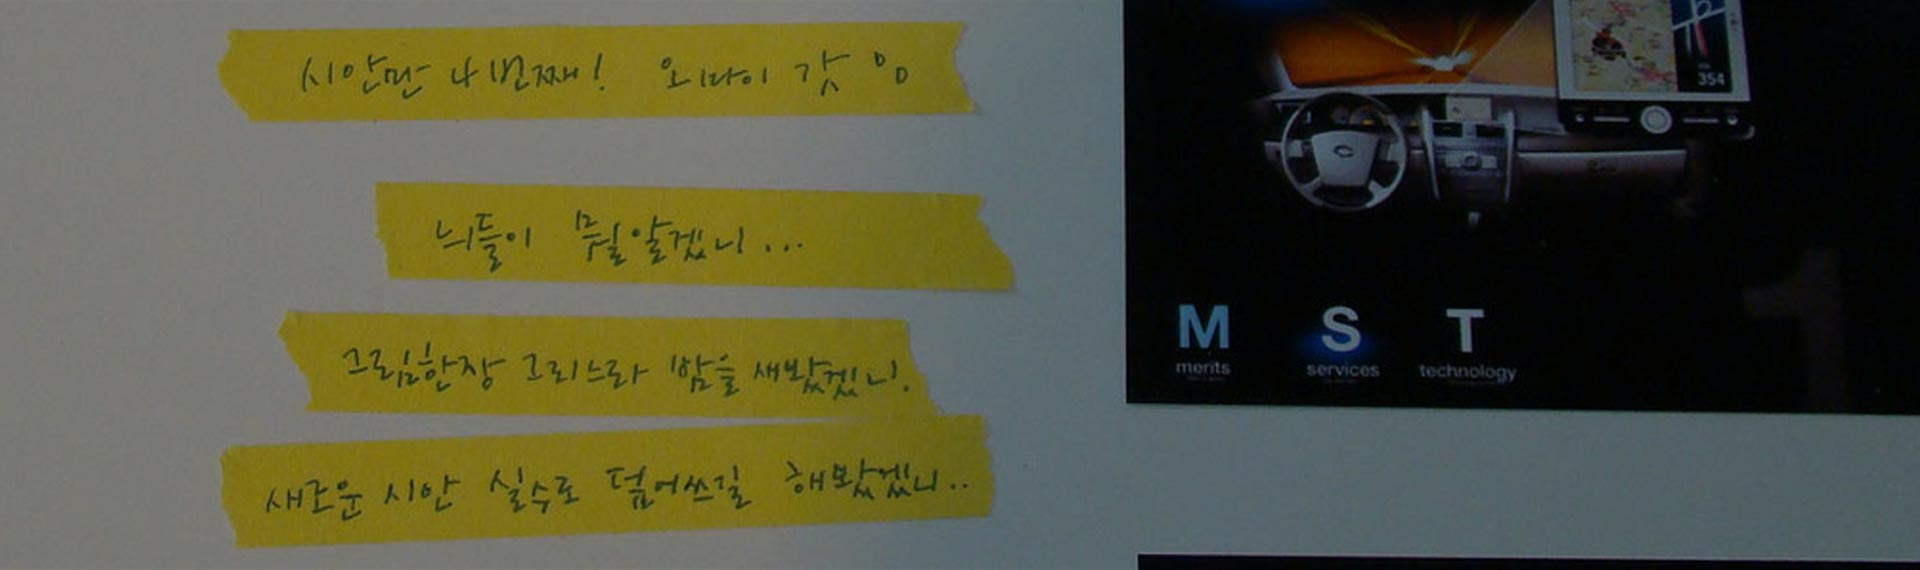 시안만 4번째! 오마이 갓 ㅇㅇ
늬들이 뭘 알겠니...
그림한장 그리느라 밤을 새봤겠니.
새로운 시안 실수로 덮어쓰길 해봤겠니..
354
M S T
merits services technology